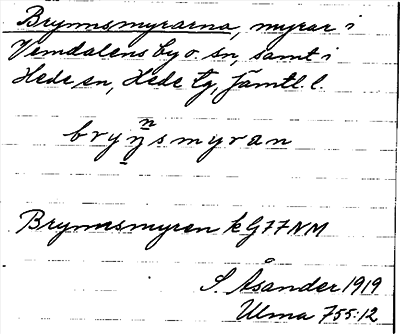 Brynnsmyrarna, myrar i
Vemdalens by o. sn, samt i
Hede sn, Hede tg, Jämtl. l.
n
brynsmyran
Brynnsmyren k G77NM
S. Åsander 1919
Ulma 755:12